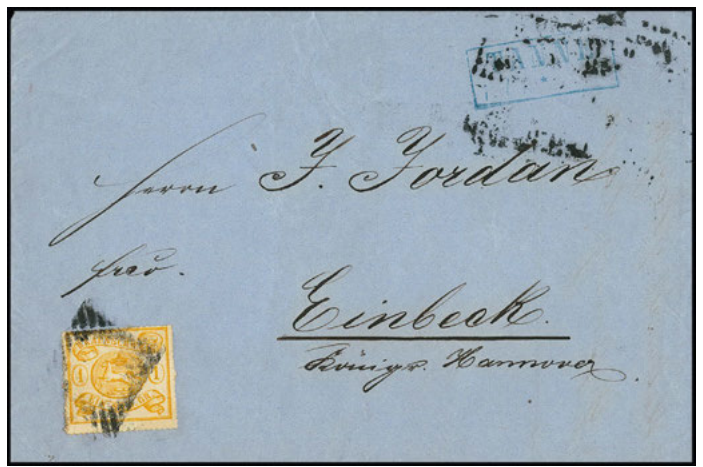 Herrn J. Jordan
frco.
Einbeck.
Königr. Hannover
1 1